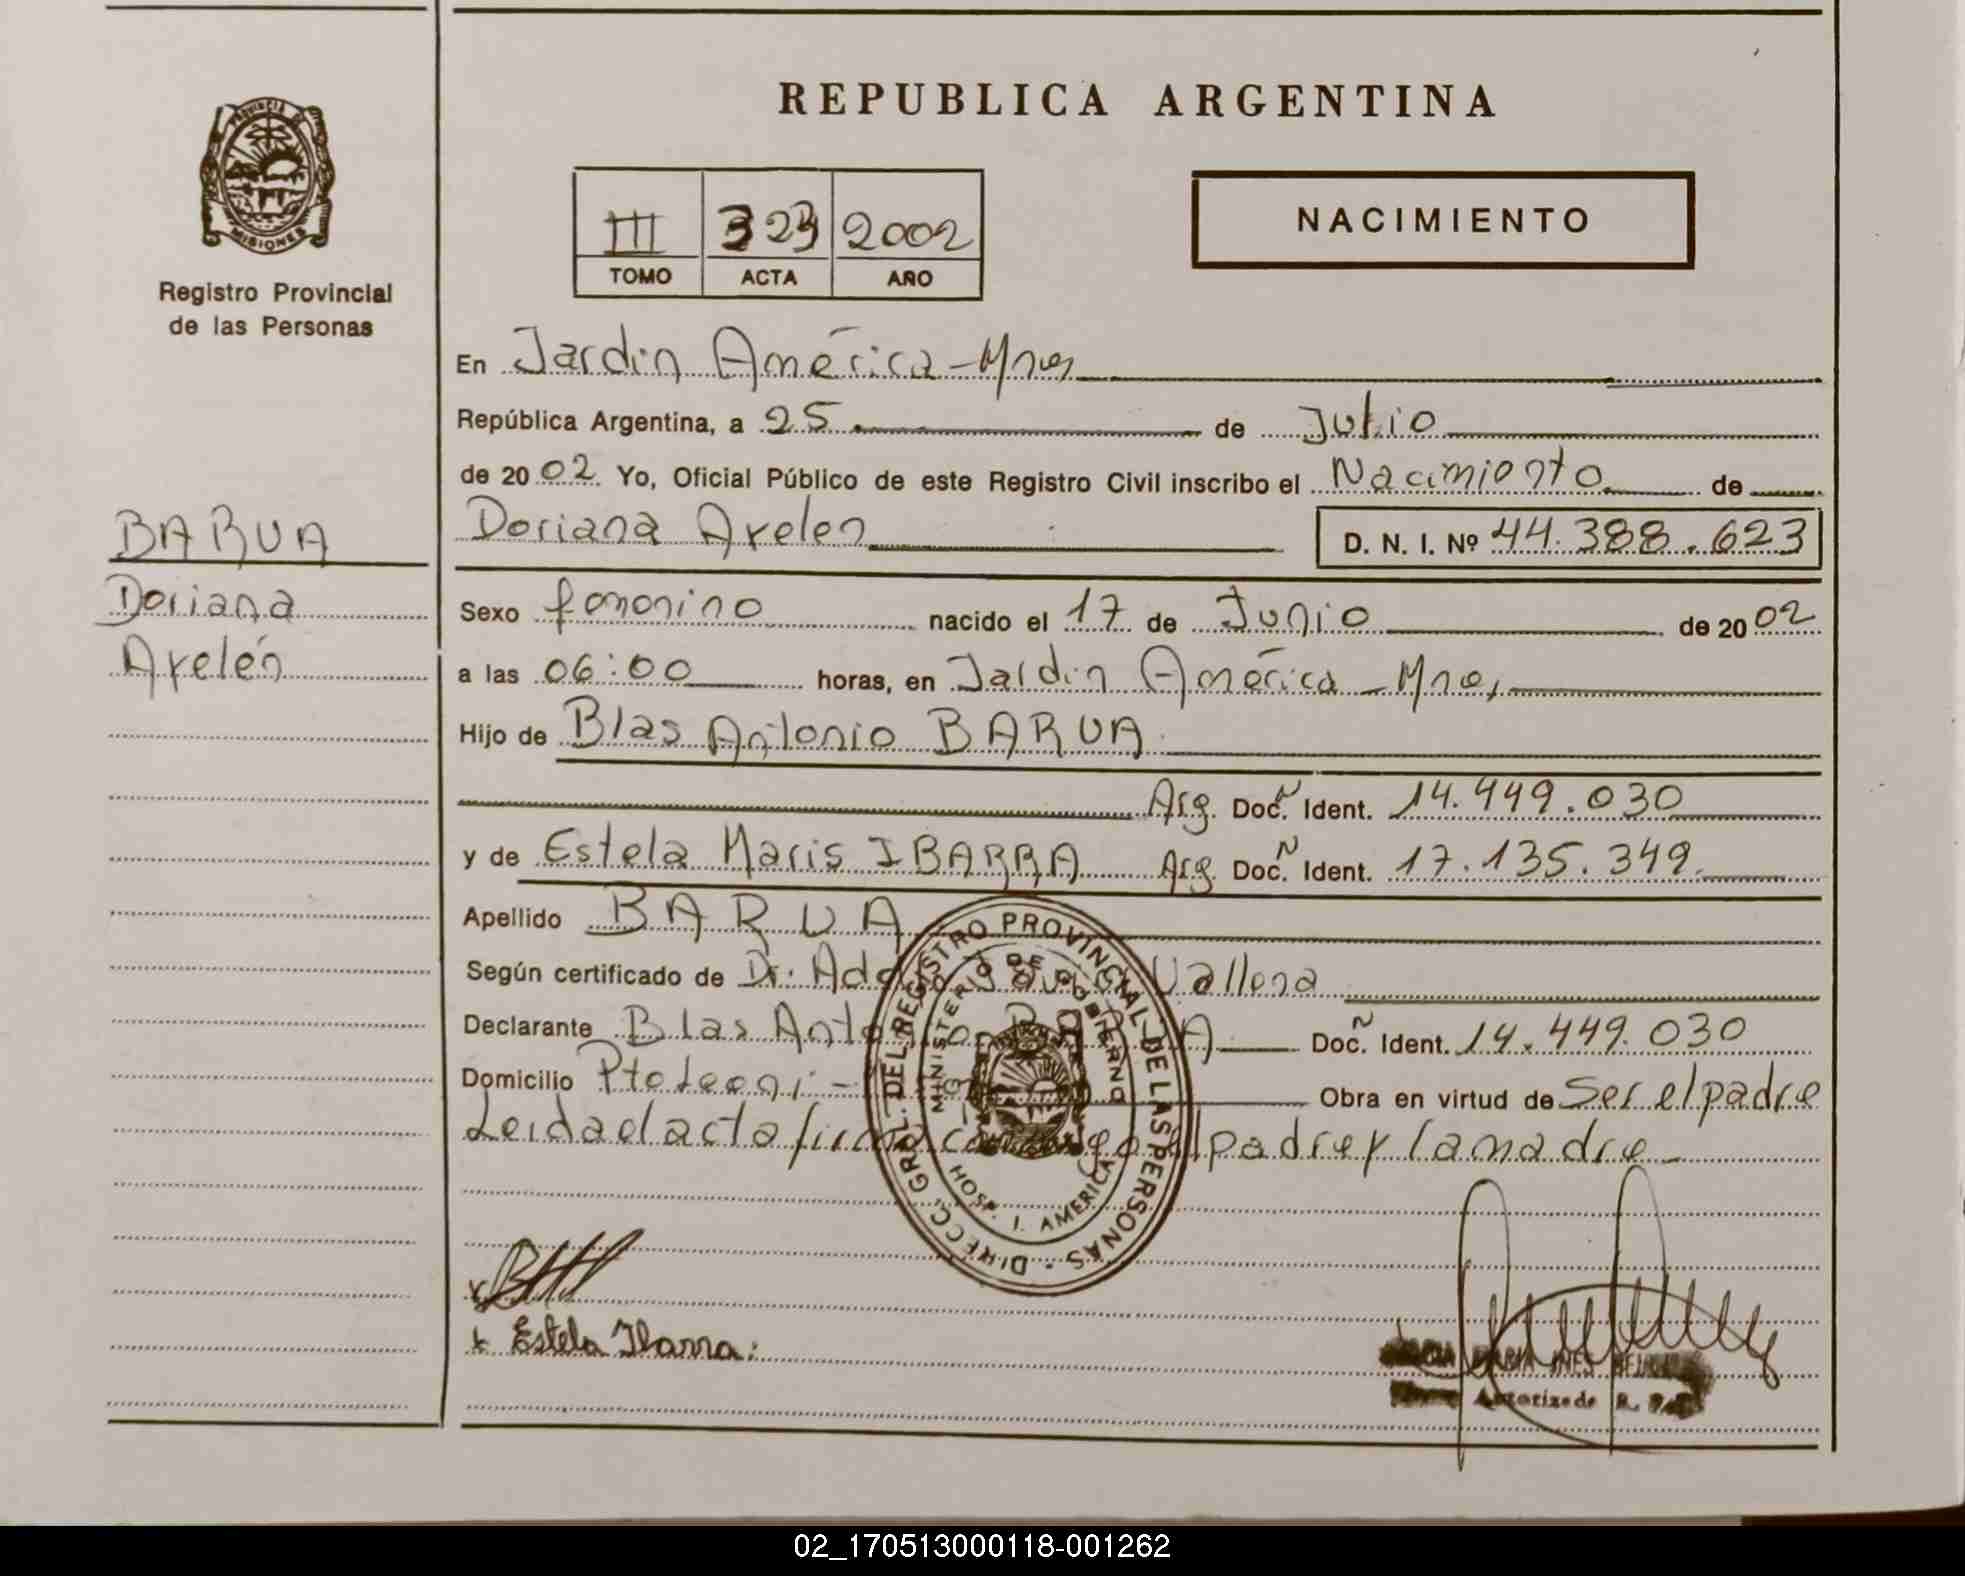 PROVINCIA DE
MISIONES
Registro Provincial
de las Personas
BARUA
Doriana
Axelén
REPUBLICA ARGENTINA
III 323 2002
TOMO ACTA AÑO
NACIMIENTO
En Jardin América - Mnes
República Argentina, a 25 de Julio
de 2002 Yo, Oficial Público de este Registro Civil inscribo el Nacimiento de
Doriana Axelen D. N. I. Nº 44.388.623
Sexo femenino nacido el 17 de Junio de 2002
a las 06:00 horas, en Jardin América - Mnes
Hijo de Blas Antonio BARUA
Arg. Doc. N Ident. 14.449.030
y de Estela Maris IBARRA Arg. Doc. N Ident. 17.135.349
Apellido BARUA
Según certificado de Dr. Vallena
Declarante Blas Antonio BARUA Doc. N Ident. 14.449.030
Domicilio Pto Leoni - Obra en virtud de Ser el padre
Leida el acta firma conmigo el padre y la madre
DIRECC. GRAL. DEL REGISTRO PROVINCIAL DE LAS PERSONAS
MINISTERIO DE GOBIERNO
HOSP. J. AMERICA
x
x Estela Ibarra
MARIA INES
Autorizada R. P.
02_170513000118-001262